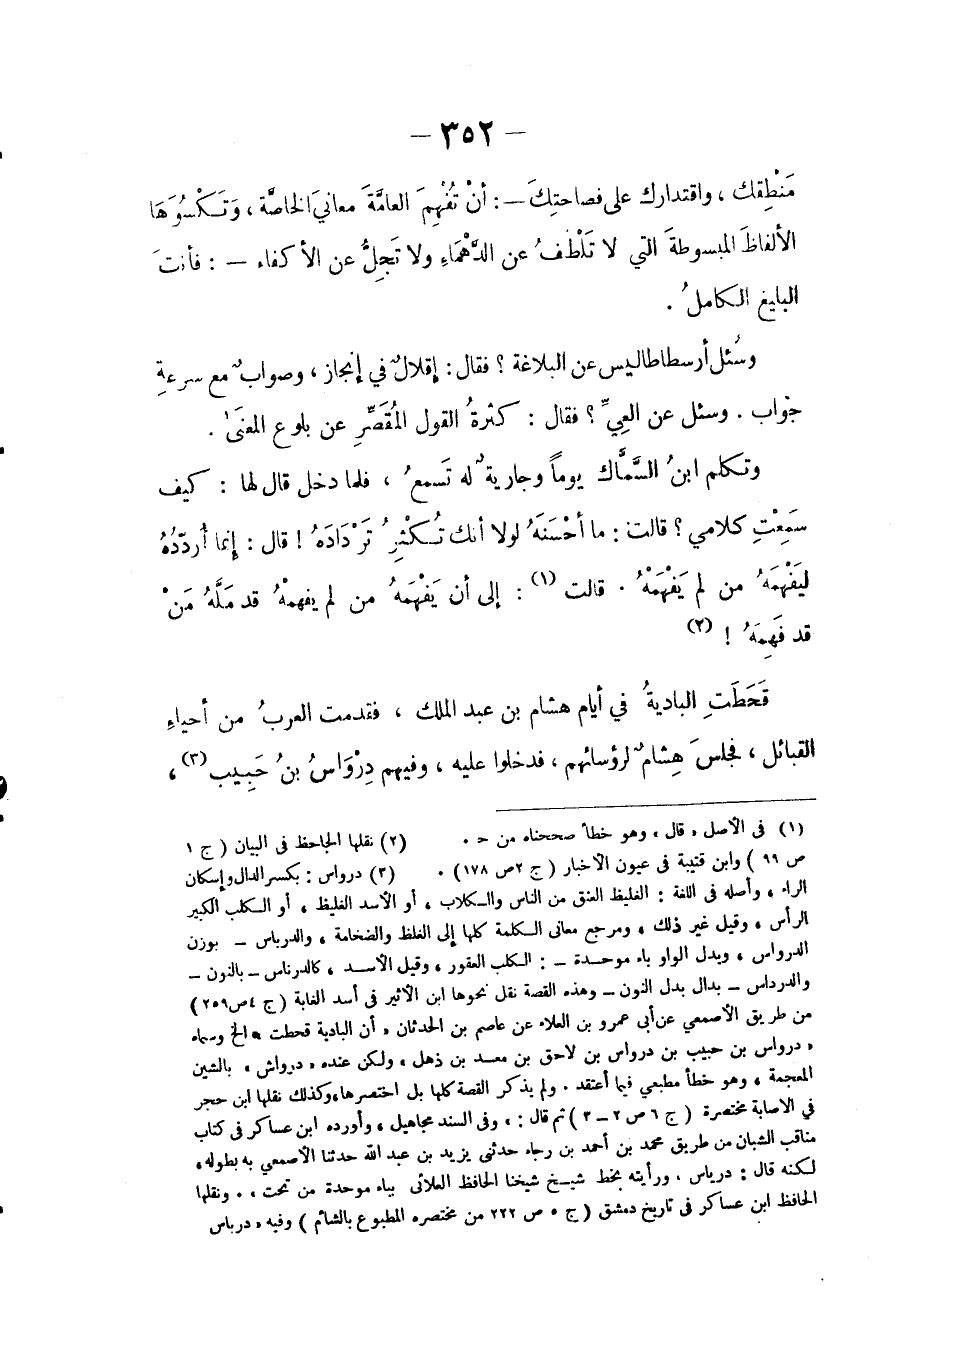 — ٣٥٢ —
مَنْطِقك ، واقتدارك على فصاحتِكَ — : أنْ تُفْهِمَ العامَّةَ معانيَ الخاصَّة ، وَتَكْسُوَهَا
الألفاظَ المبسوطةَ التي لا تَلْطُفُ عن الدَّهْمَاءِ ولا تَجِلُّ عن الأكفاء — : فأنتَ
البليغ الكاملُ .
وسُئل أرسطاطاليس عن البلاغة ؟ فقال : إقلالٌ في إنجاز ، وصوابٌ مع سرعةِ
جواب . وسئل عن العِيِّ ؟ فقال : كثرةُ القول المُقَصِّرِ عن بلوغ المعنىٰ .
وتكلم ابنُ السَّمَّاك يوماً وجاريةٌ له تَسمعُ ، فلما دخل قال لها : كيف
سَمِعْتِ كلامي ؟ قالت : ما أحْسَنَهُ لولا أنك تُكْثِرُ تَرْدَادَهُ ! قال : إنما أُردّدُهُ
ليَفْهَمَهُ من لم يَفْهَمْهُ . قالت (١) : إلى أن يَفْهَمَهُ من لم يفهمْهُ قد مَلَّهُ مَنْ
قد فَهِمَهُ ! (٢)
قَحَطَتِ الباديةُ في أيام هشام بن عبد الملك ، فقدمت العربُ من أحياءِ
القبائل ، فجلسَ هِشامٌ لرؤسائهم ، فدخلوا عليه ، وفيهم دِرْوَاسُ بنُ حَبِيب (٣) ،
(١) فى الأصل « قال » وهو خطأ صححناه من ح . (٢) نقلها الجاحظ فى البيان ( ج ١
ص ٩٩ ) وابن قتيبة فى عيون الأخبار ( ج ٢ ص ١٧٨ ) . (٣) درواس : بكسر الدال وإسكان
الراء ، وأصله فى اللغة : الغليظ العنق من الناس والكلاب ، أو الأسد الغليظ ، أو الكلب الكبير
الرأس ، وقيل غير ذلك ، ومرجع معانى الكلمة كلها إلى الغلظ والضخامة ، والدرباس — بوزن
الدرواس ، وبدل الواو باء موحدة — : الكلب العقور ، وقيل الأسد ، كالدرناس — بالنون —
والدرداس — بدال بدل النون — وهذه القصة نقل نحوها ابن الأثير فى أسد الغابة ( ج ٤ ص ٢٥٩ )
من طريق الأصمعي عن أبى عمرو بن العلاء عن عاصم بن الحدثان « أن البادية قحطت » الخ وسماه
« درواس بن حبيب بن درواس بن لاحق بن معد بن ذهل » ولكن عنده « درواش » بالشين
المعجمة ، وهو خطأ مطبعي فيما أعتقد . ولم يذكر القصة كلها بل اختصرها ، وكذلك نقلها ابن حجر
في الاصابة مختصرة ( ج ٦ ص ٢ — ٣ ) ثم قال : « وفى السند مجاهيل ، وأورده ابن عساكر فى كتاب
مناقب الشبان من طريق محمد بن أحمد بن رجاء حدثنى يزيد بن عبد الله حدثنا الأصمعي به بطوله ،
لكنه قال : درباس ، ورأيته بخط شيخ شيخنا الحافظ العلائى بباء موحدة من تحت » . ونقلها
الحافظ ابن عساكر فى تاريخ دمشق ( ج ٥ ص ٢٢٢ من مختصره المطبوع بالشام ) وفيه « درباس